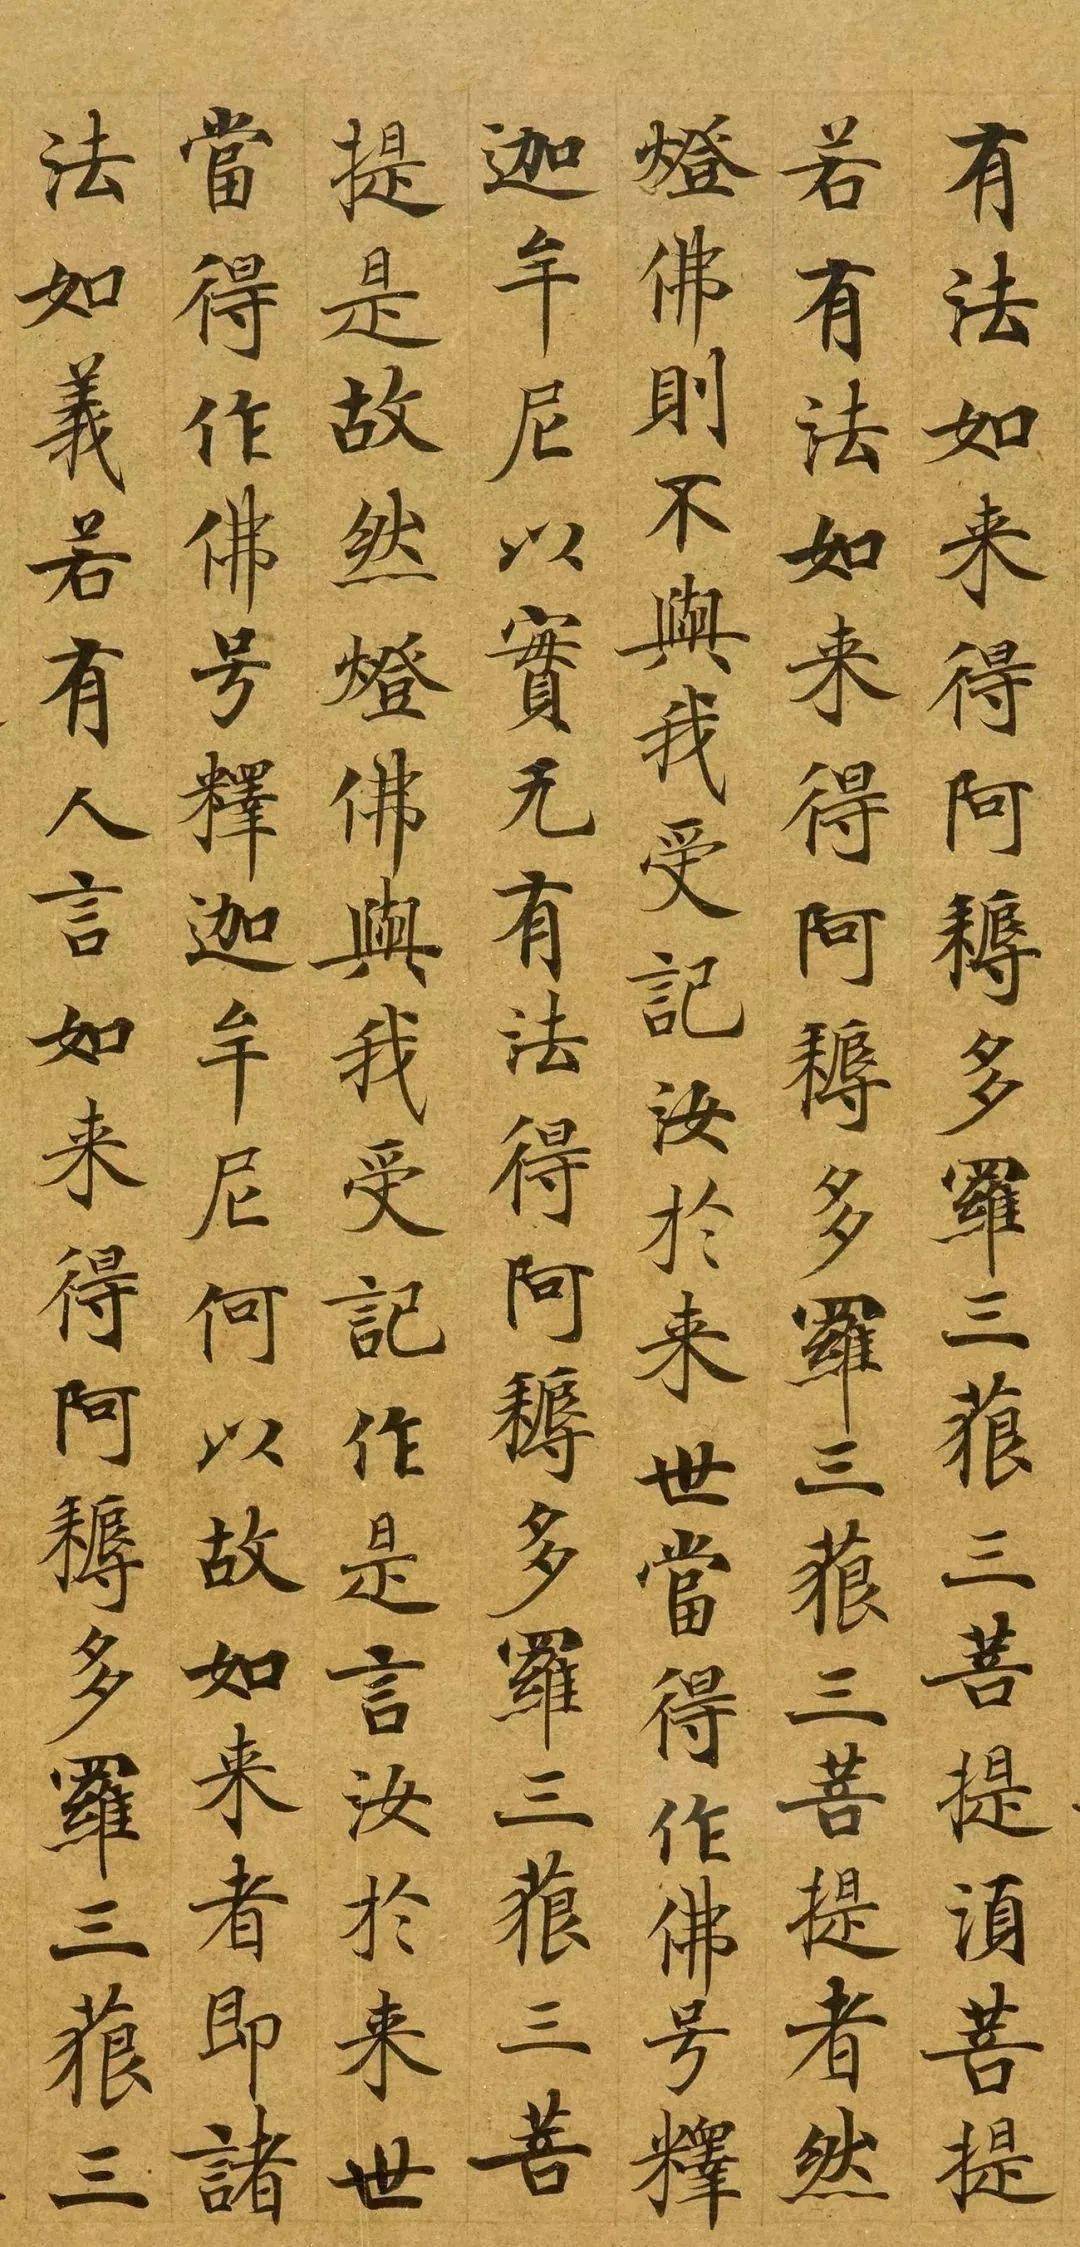 有法如来得阿耨多羅三藐三菩提湏菩提
若有法如来得阿耨多羅三藐三菩提者然
燈佛則不與我受記汝於来世當得作佛号釋
迦牟尼以實无有法得阿耨多羅三藐三菩
提是故然燈佛與我受記作是言汝於来世
當得作佛号釋迦牟尼何以故如来者即諸
法如義若有人言如来得阿耨多羅三藐三